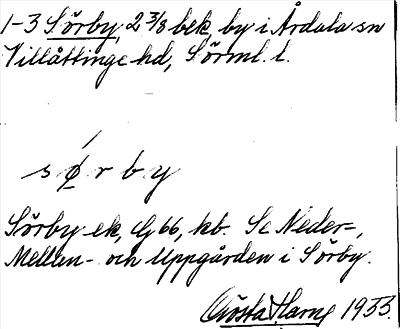 1-3 Sörby, 2 3/8 bek, by i Årdala sn
Villåttinge hd, Sörml. l.
sǿrby
Sörby ek, Gj 66, kb. Se Neder-,
Mellan- och Uppgården i Sörby.
Gösta Harne 1933.